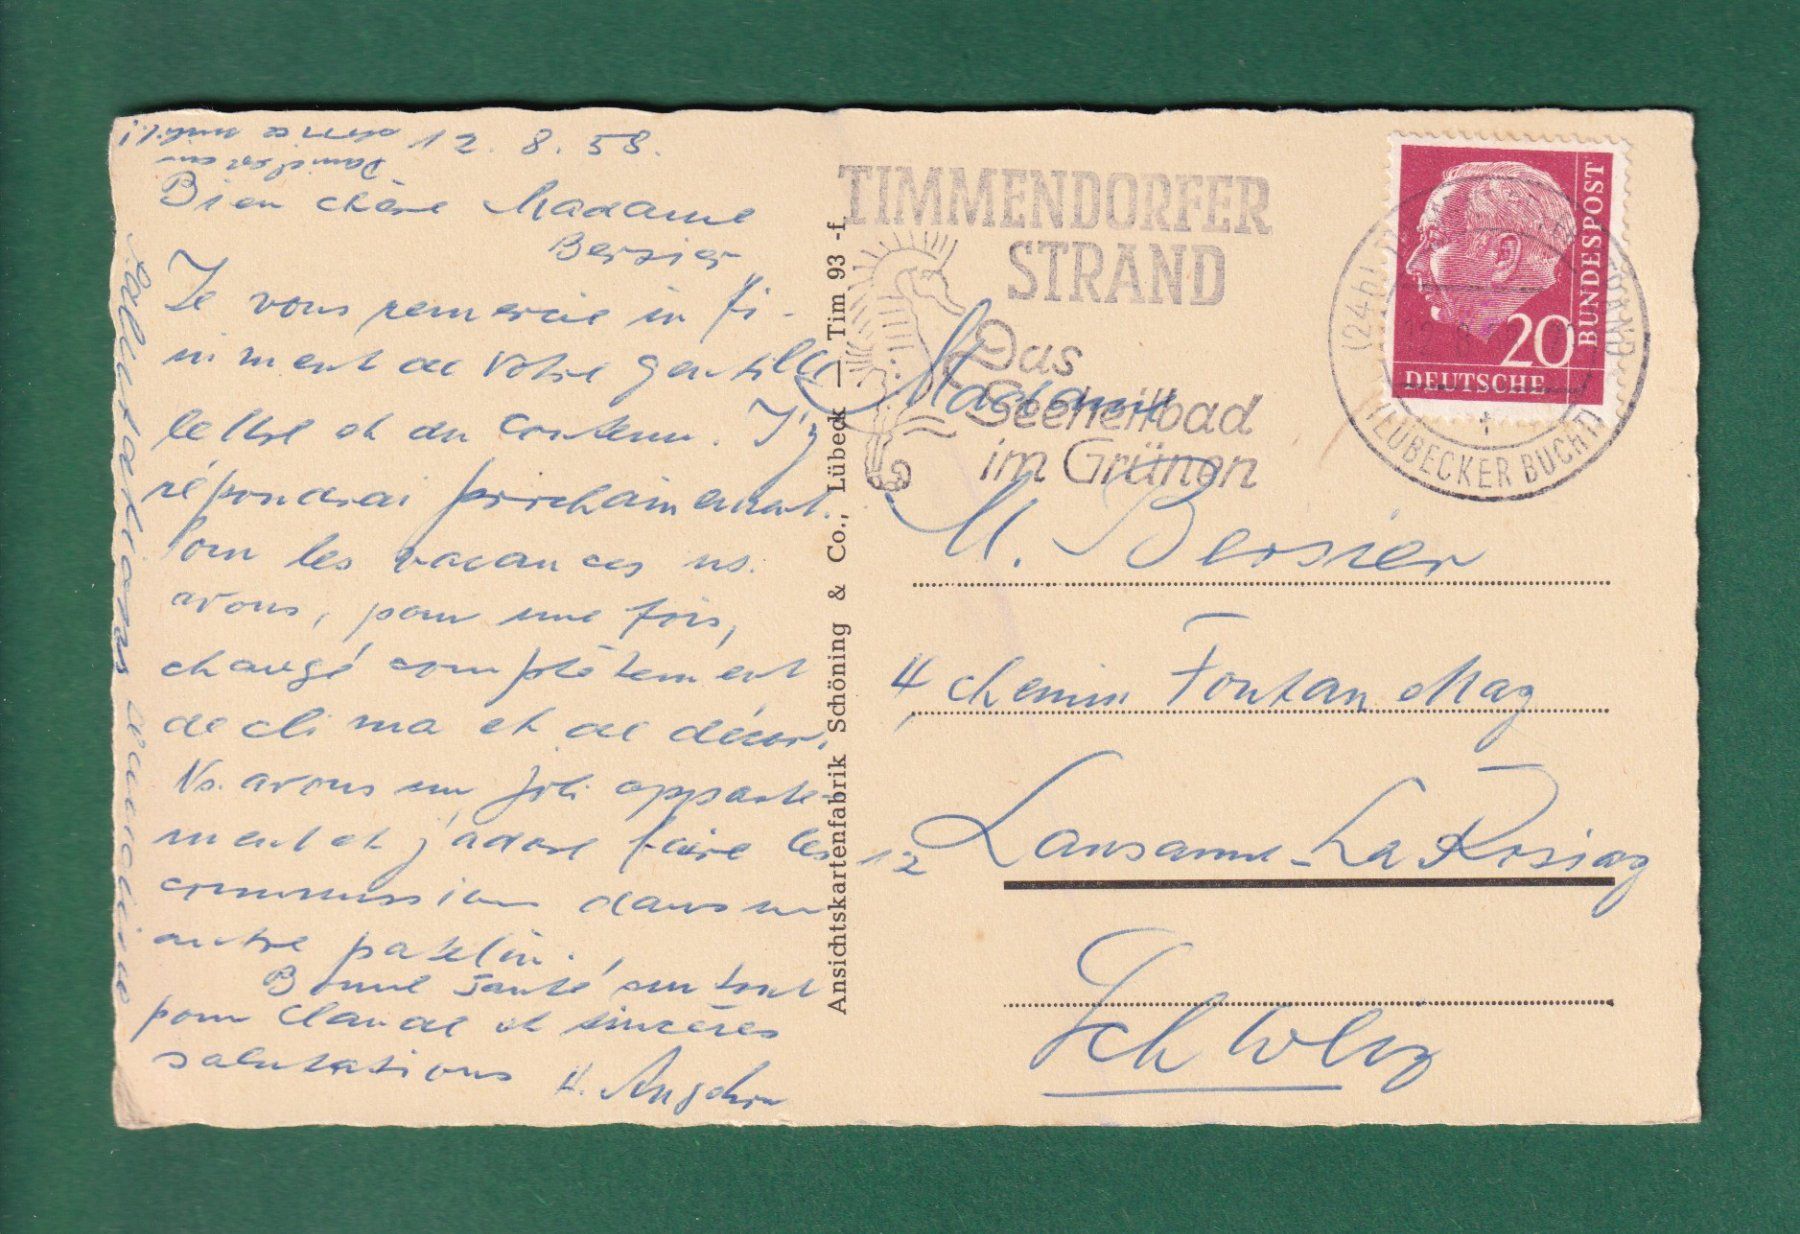 12. 8. 58.
Bien chère Madame
Bersier
Je vous remercie infi-
niment de votre gentille
lettre et du contenu. J'y
répondrai prochainement.
Pour les vacances ns.
avons, pour une fois,
changé complètement
de climat et de décor.
Ns. avons un joli apparte-
ment et j'adore faire les
commissions dans un
autre patelin.
Bonne santé, surtout
pour Claude et sincères
salutations H.
Salutations
Ansichtskartenfabrik Schöning & Co., Lübeck — Tim 93 -f.
TIMMENDORFER
STRAND
Das
Seeheilbad
im Grünen
DEUTSCHE
BUNDESPOST
20
(24b)
(LÜBECKER BUCHT)
Madame
M. Bersier
4, chemin Fontan
12 Lausanne - La Rosiaz
Schweiz